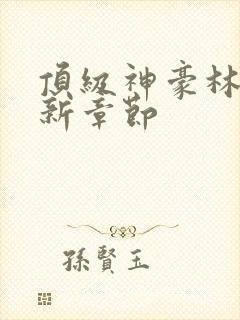 頂級神豪林
新章節
孫賢玉